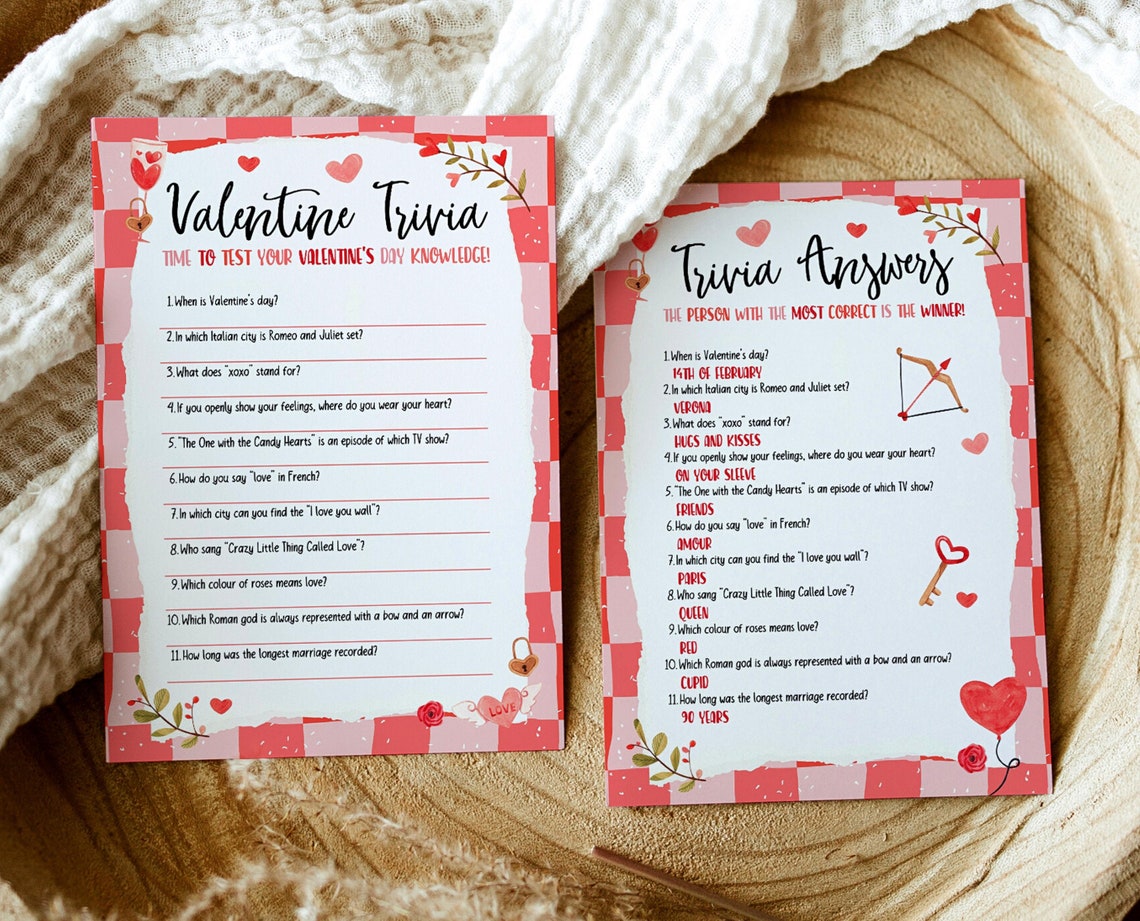 Valentine Trivia
TIME TO TEST YOUR VALENTINE'S DAY KNOWLEDGE!
1. When is Valentine's day?
2. In which Italian city is Romeo and Juliet set?
3. What does "xoxo" stand for?
4. If you openly show your feelings, where do you wear your heart?
5. "The One with the Candy Hearts" is an episode of which TV show?
6. How do you say "love" in French?
7. In which city can you find the "I love you wall"?
8. Who sang "Crazy Little Thing Called Love"?
9. Which colour of roses means love?
10. Which Roman god is always represented with a bow and an arrow?
11. How long was the longest marriage recorded?
LOVE
Trivia Answers
THE PERSON WITH THE MOST CORRECT IS THE WINNER!
1. When is Valentine's day?
14TH OF FEBRUARY
2. In which Italian city is Romeo and Juliet set?
VERONA
3. What does "xoxo" stand for?
HUGS AND KISSES
4. If you openly show your feelings, where do you wear your heart?
ON YOUR SLEEVE
5. "The One with the Candy Hearts" is an episode of which TV show?
FRIENDS
6. How do you say "love" in French?
AMOUR
7. In which city can you find the "I love you wall"?
PARIS
8. Who sang "Crazy Little Thing Called Love"?
QUEEN
9. Which colour of roses means love?
RED
10. Which Roman god is always represented with a bow and an arrow?
CUPID
11. How long was the longest marriage recorded?
90 YEARS